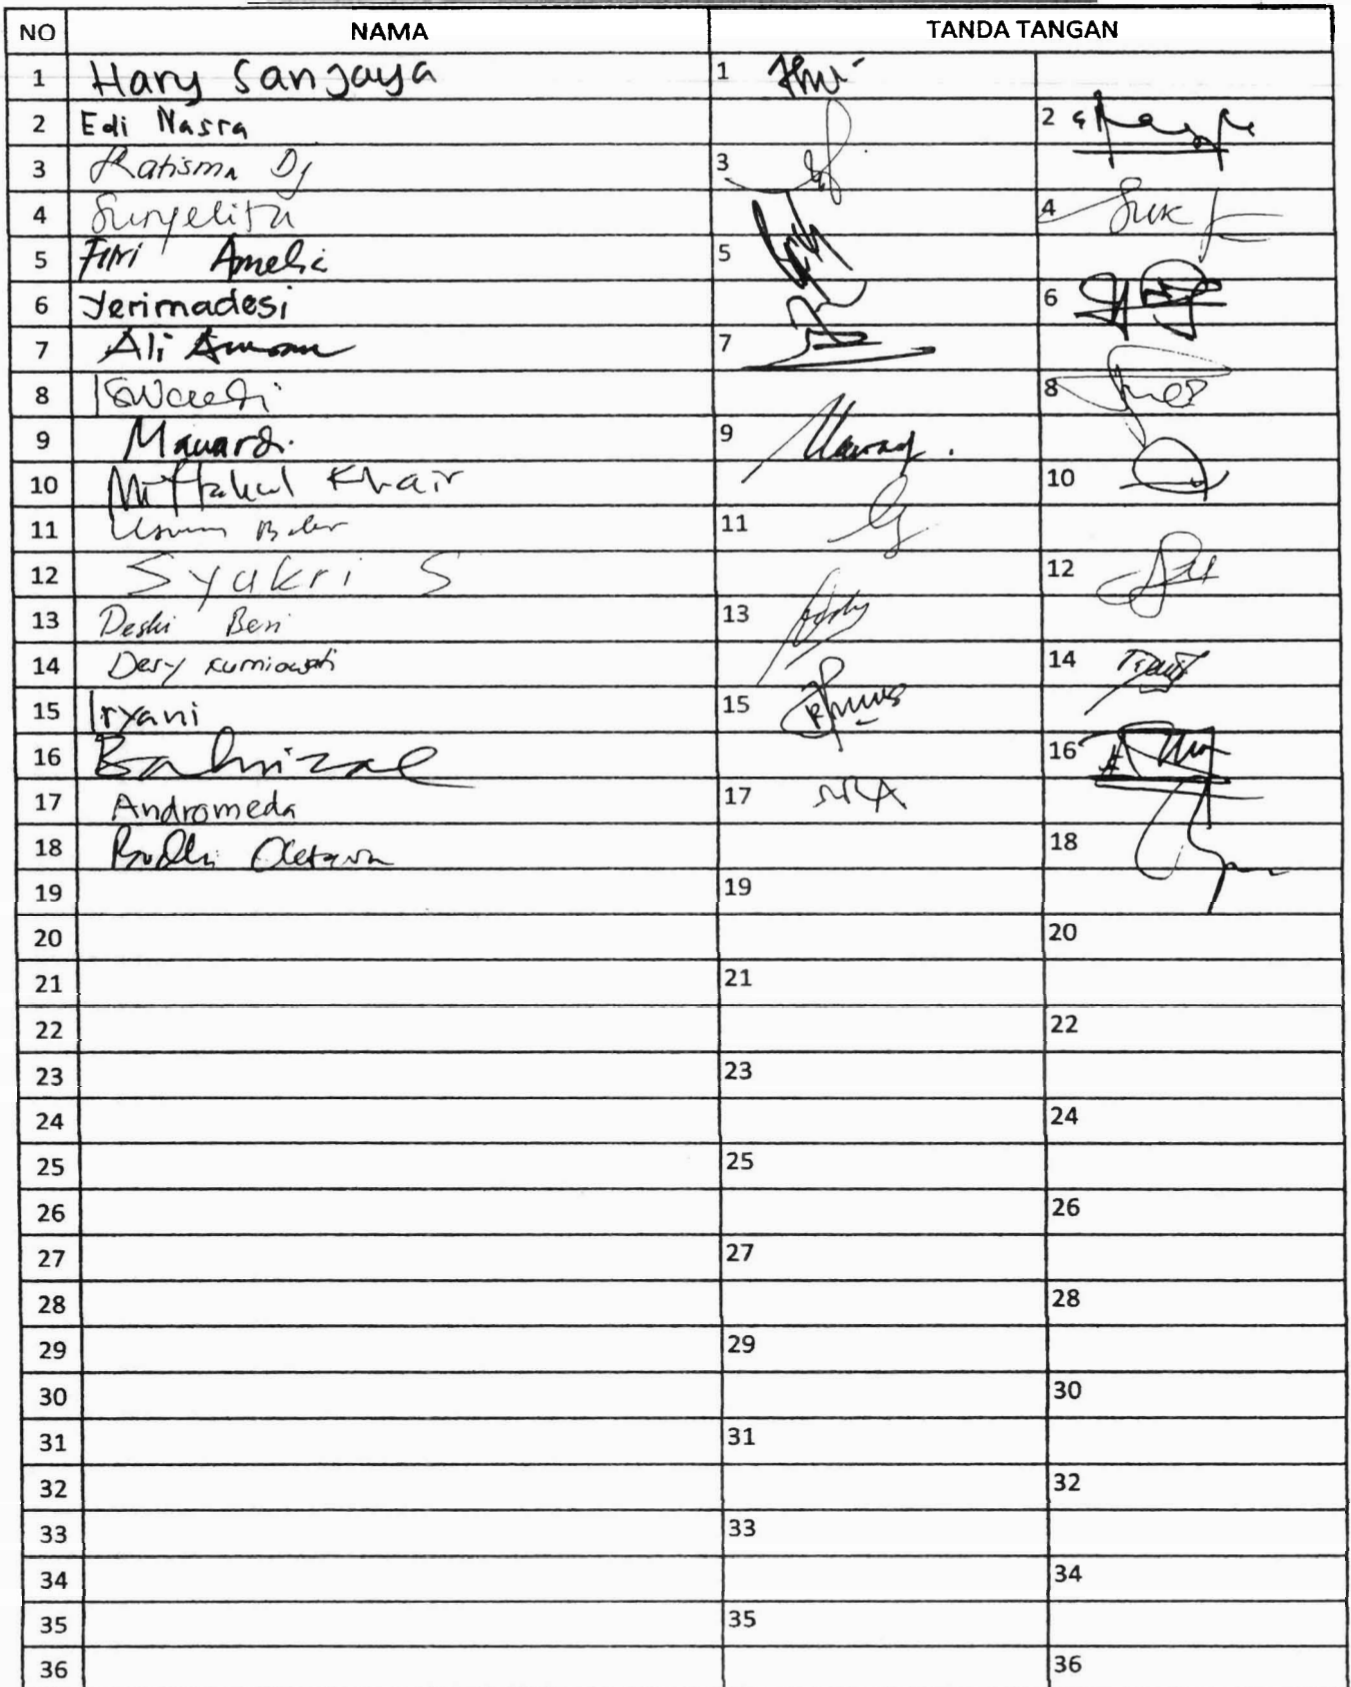 NO NAMA TANDA TANGAN
1 Hary Sanjaya 1
2 Edi Nasra 2
3 Ratisma Dj 3
4 Suryelita 4
5 Fitri Amelia 5
6 Yerimadesi 6
7 Ali Amran 7
8 Iswendi 8
9 Mawardi. 9
10 Miftahul Khair 10
11 Usman Bakar 11
12 Syukri S 12
13 Deski Beri 13
14 Desy Kurniawati 14
15 Iryani 15
16 Bahrizal 16
17 Andromeda 17
18 Budhi Oktavia 18
19 19
20 20
21 21
22 22
23 23
24 24
25 25
26 26
27 27
28 28
29 29
30 30
31 31
32 32
33 33
34 34
35 35
36 36